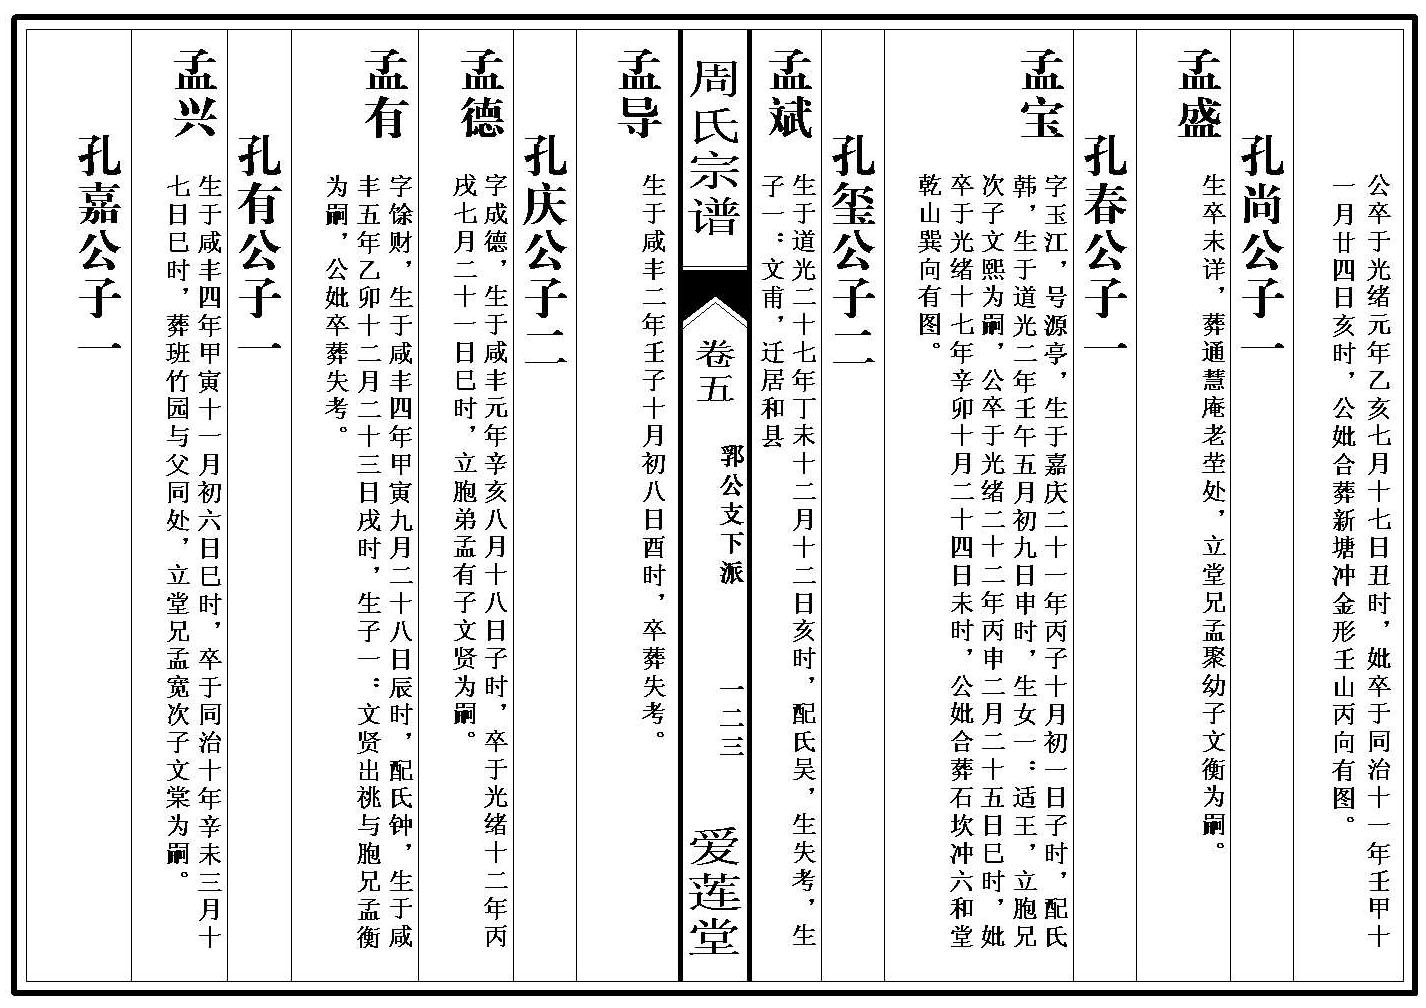 公卒于光绪元年乙亥七月十七日丑时，妣卒于同治十一年壬甲十
一月廿四日亥时，公妣合葬新塘冲金形壬山丙向有图。
孔尚公子一
孟盛
生卒未详，葬通慧庵老茔处，立堂兄孟聚幼子文衡为嗣。
孔春公子一
孟宝
字玉江，号源亭，生于嘉庆二十一年丙子十月初一日子时，配氏
韩，生于道光二年壬午五月初九日申时，生女一：适王，立胞兄
次子文熙为嗣，公卒于光绪二十二年丙申二月二十五日巳时，妣
卒于光绪十七年辛卯十月二十四日未时，公妣合葬石坎冲六和堂
乾山巽向有图。
孔玺公子二
孟斌
生于道光二十七年丁未十二月十二日亥时，配氏吴，生失考，生
子一：文甫，迁居和县
周氏宗谱
卷五
郛公支下派
一二三
爱莲堂
孟导
生于咸丰二年壬子十月初八日酉时，卒葬失考。
孔庆公子二
孟德
字成德，生于咸丰元年辛亥八月十八日子时，卒于光绪十二年丙
戌七月二十一日巳时，立胞弟孟有子文贤为嗣。
孟有
字馀财，生于咸丰四年甲寅九月二十八日辰时，配氏钟，生于咸
丰五年乙卯十二月二十三日戌时，生子一：文贤出祧与胞兄孟衡
为嗣，公妣卒葬失考。
孔有公子一
孟兴
生于咸丰四年甲寅十一月初六日巳时，卒于同治十年辛未三月十
七日巳时，葬班竹园与父同处，立堂兄孟宽次子文棠为嗣。
孔嘉公子一